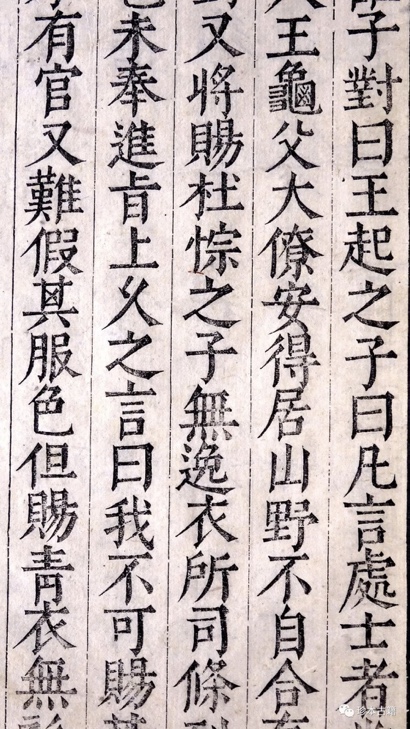 子對曰王起之子曰凡言處士者
王龜父大僚安得居山野不自合
又將賜杜悰之子無逸衣所司條
未奉進旨上久之言曰我不可賜
有官又難假其服色但賜青衣無
珍本古籍